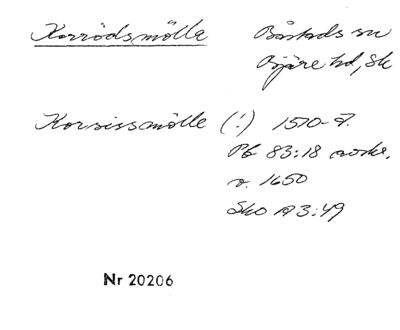 Korrödsmölla Båstads sn
Bjäre hd, Sk
Korsissmölle (!) 1510-t.
Pb 83:18 avskr.
v. 1650
Sko A3:49
Nr 20206